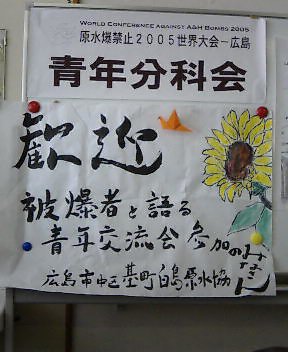 WORLD CONFERENCE AGAINST A&H BOMBS 2005
原水爆禁止2005世界大会－広島
青年分科会
歓迎
被爆者と語る
青年交流会参加のみなさん
広島市中区基町白島原水協